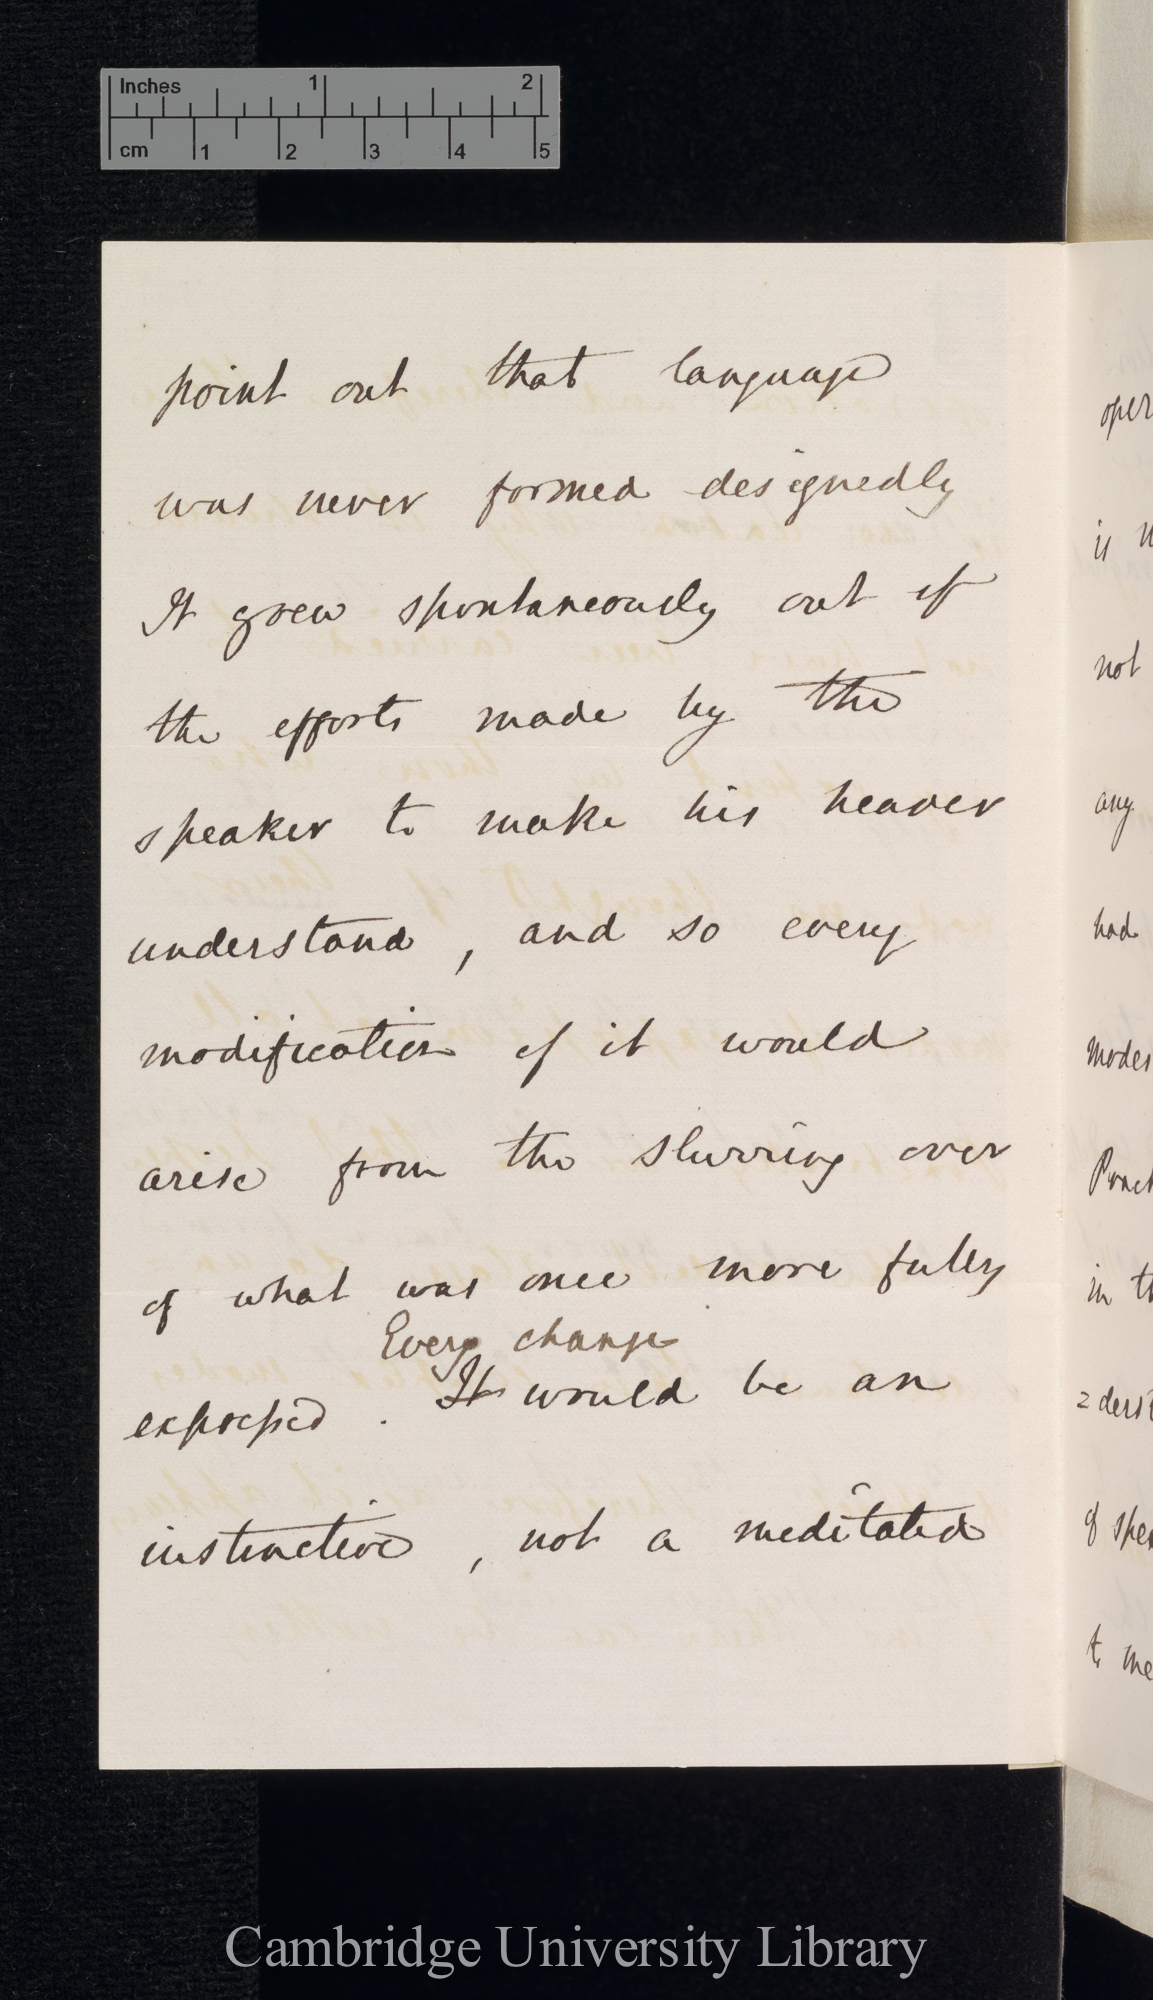 Inches 1 2
cm 1 2 3 4 5
point out that language
was never formed designedly
It grew spontaneously out of
the efforts made by the
speaker to make his hearer
understand, and so every
modification of it would
arise from the slurring over
of what was once more fully
Every change
expressed. It would be an
instinctive, not a meditated
oper
is
not
any
had
modes
Pract
in th
=derst
of spea
to me
Cambridge University Library